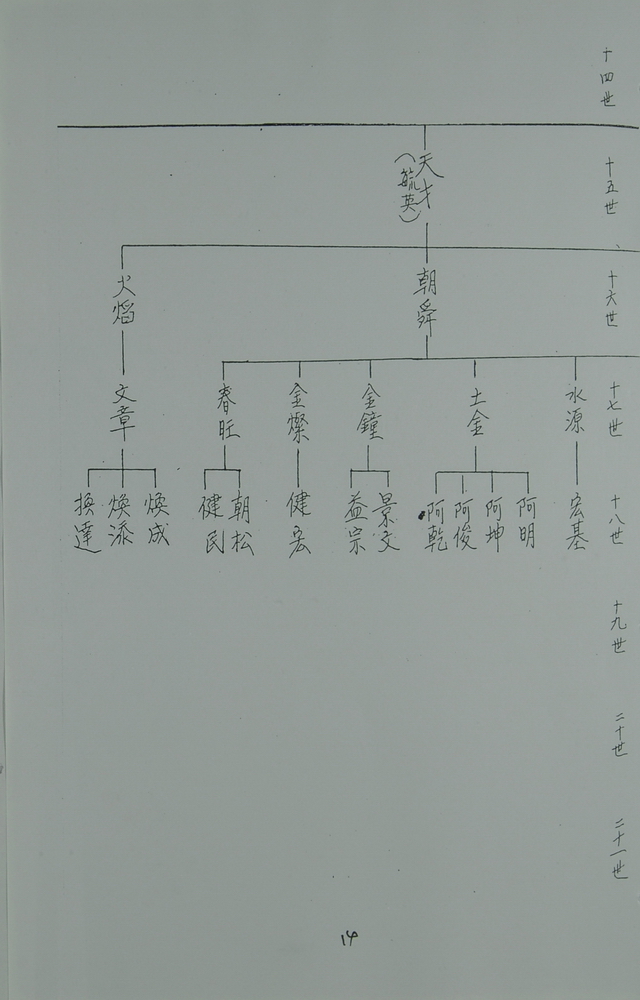 十四世
十五世
十六世
十七世
十八世
十九世
二十世
二十一世
天才
(毓英)
朝舜
火熖
水源
土金
金鐘
金燦
春旺
文章
宏基
阿明
阿坤
阿俊
阿乾
景文
益宗
健宏
朝松
健民
煥成
煥添
換達
14